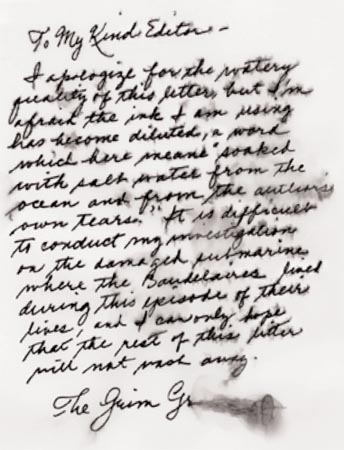 To My Kind Editor –
I apologize for the watery
quality of this letter, but I'm
afraid the ink I am using
has become diluted, a word
which here means "soaked
with salt water from the
ocean and from the author's
own tears." It is difficult
to conduct my investigation
on the damaged submarine
where the Baudelaires lived
during this episode of their
lives, and I can only hope
that the rest of this letter
will not wash away.
The Grim Gr